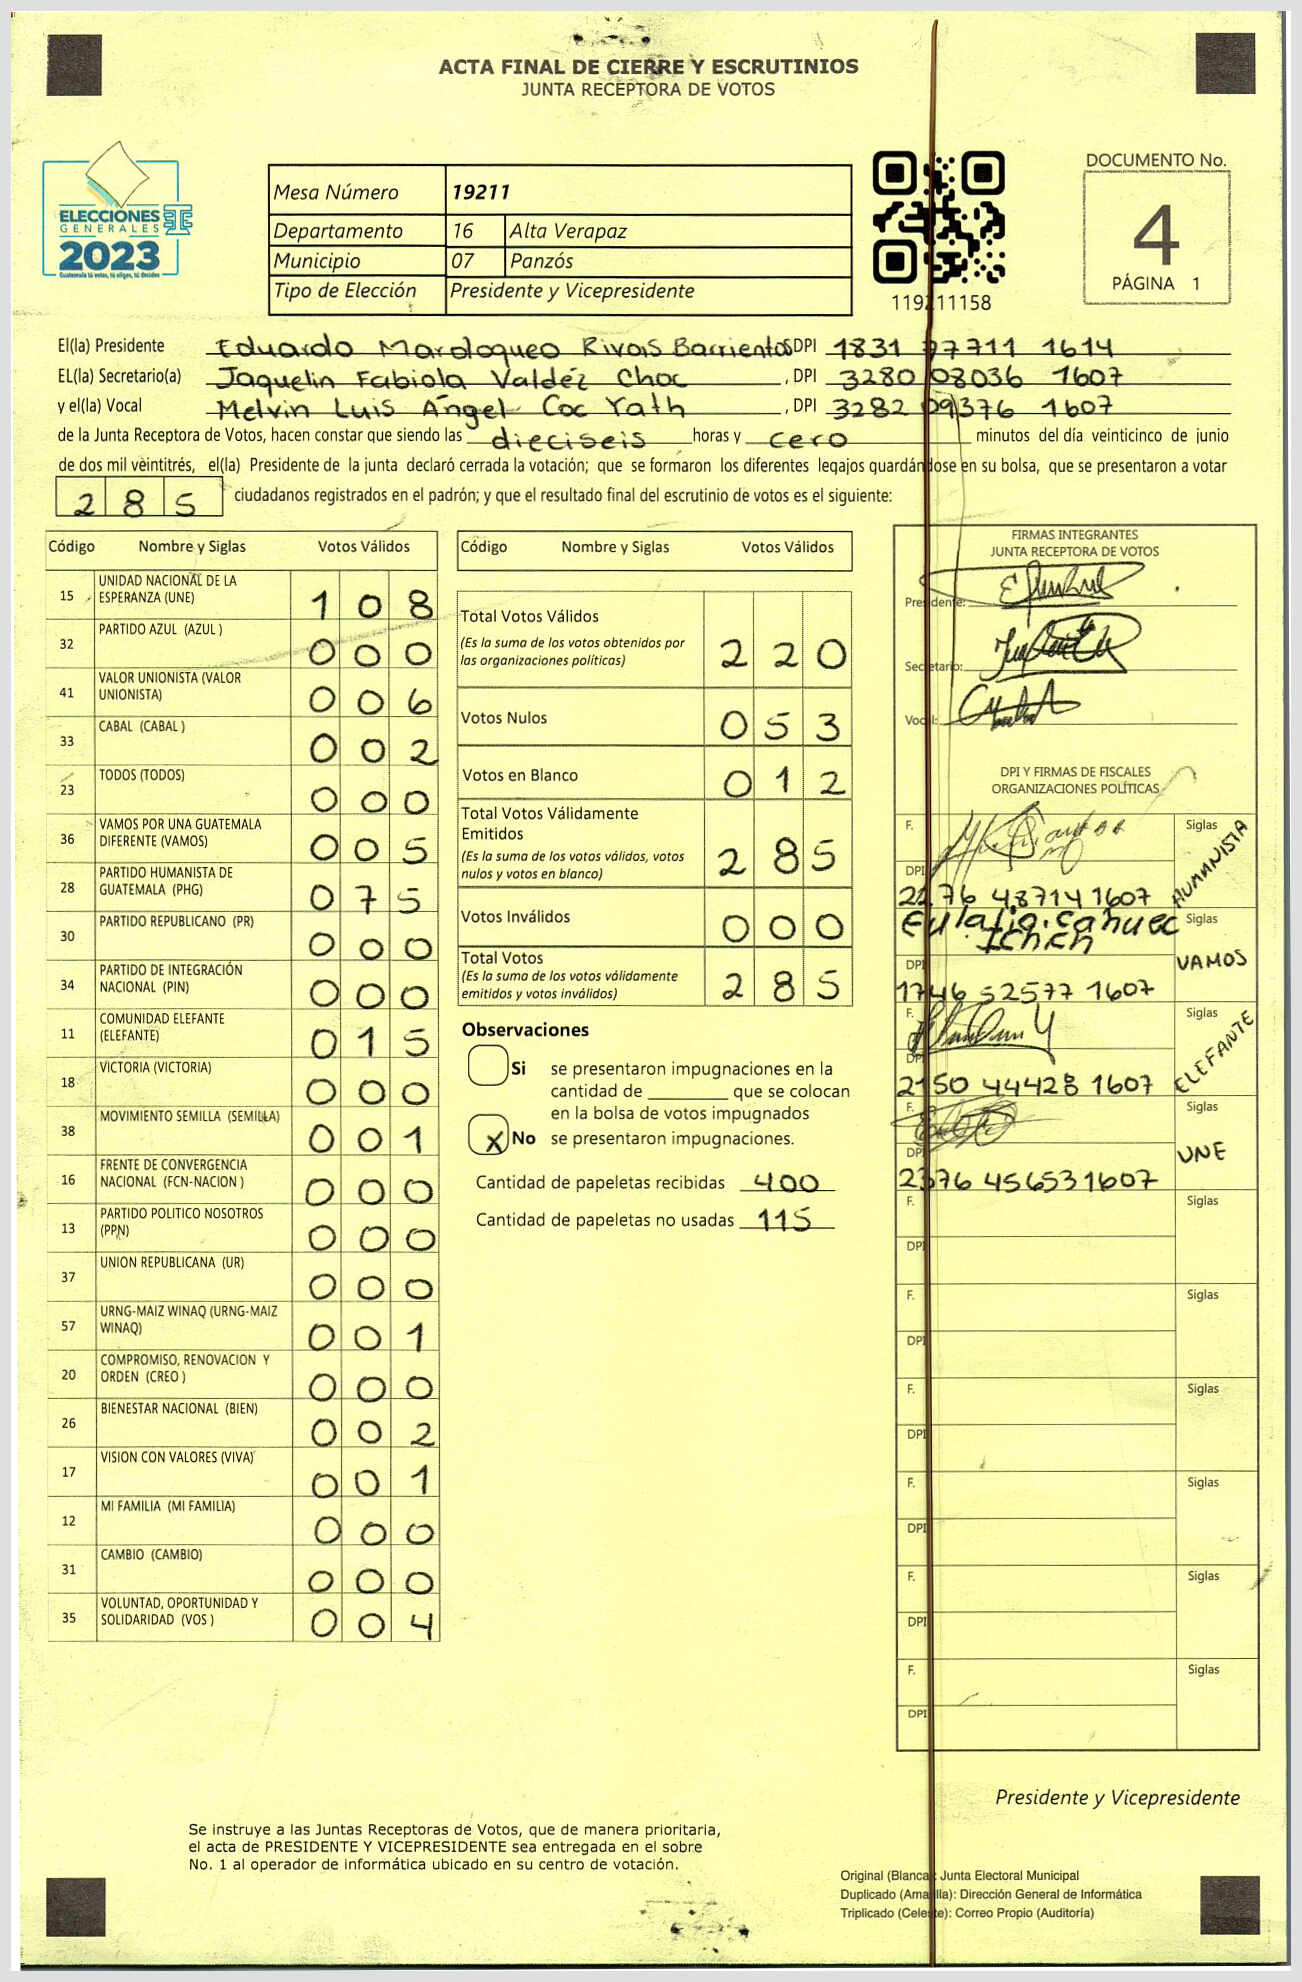 ACTA FINAL DE CIERRE Y ESCRUTINIOS
JUNTA RECEPTORA DE VOTOS
ELECCIONES
GENERALES
2023
Guatemala tú votas, tú eliges, tú decides
Mesa Número 19211
Departamento 16 Alta Verapaz
Municipio 07 Panzós
Tipo de Elección Presidente y Vicepresidente
119211158
DOCUMENTO No.
4
PÁGINA 1
El(la) Presidente Eduardo Mardoqueo Rivas Barrientos DPI 1831 77711 1614
EL(la) Secretario(a) Jaquelin Fabiola Valdéz Choc , DPI 3280 08036 1607
y el(la) Vocal Melvin Luis Ángel Coc Yath , DPI 3282 09376 1607
de la Junta Receptora de Votos, hacen constar que siendo las dieciseis horas y cero minutos del día veinticinco de junio
de dos mil veintitrés, el(la) Presidente de la junta declaró cerrada la votación; que se formaron los diferentes legajos quardándose en su bolsa, que se presentaron a votar
285 ciudadanos registrados en el padrón; y que el resultado final del escrutinio de votos es el siguiente:
Código Nombre y Siglas Votos Válidos
15 UNIDAD NACIONAL DE LA
ESPERANZA (UNE) 108
32 PARTIDO AZUL (AZUL ) 000
41 VALOR UNIONISTA (VALOR
UNIONISTA) 006
33 CABAL (CABAL ) 002
23 TODOS (TODOS) 000
36 VAMOS POR UNA GUATEMALA
DIFERENTE (VAMOS) 005
28 PARTIDO HUMANISTA DE
GUATEMALA (PHG) 075
30 PARTIDO REPUBLICANO (PR) 000
34 PARTIDO DE INTEGRACIÓN
NACIONAL (PIN) 000
11 COMUNIDAD ELEFANTE
(ELEFANTE) 015
18 VICTORIA (VICTORIA) 000
38 MOVIMIENTO SEMILLA (SEMILLA) 001
16 FRENTE DE CONVERGENCIA
NACIONAL (FCN-NACION ) 000
13 PARTIDO POLITICO NOSOTROS
(PPN) 000
37 UNION REPUBLICANA (UR) 000
57 URNG-MAIZ WINAQ (URNG-MAIZ
WINAQ) 001
20 COMPROMISO, RENOVACION Y
ORDEN (CREO ) 000
26 BIENESTAR NACIONAL (BIEN) 002
17 VISION CON VALORES (VIVA) 001
12 MI FAMILIA (MI FAMILIA) 000
31 CAMBIO (CAMBIO) 000
35 VOLUNTAD, OPORTUNIDAD Y
SOLIDARIDAD (VOS ) 004
Código Nombre y Siglas Votos Válidos
Total Votos Válidos
(Es la suma de los votos obtenidos por
las organizaciones políticas) 220
Votos Nulos 053
Votos en Blanco 012
Total Votos Válidamente
Emitidos
(Es la suma de los votos válidos, votos
nulos y votos en blanco) 285
Votos Inválidos 000
Total Votos
(Es la suma de los votos válidamente
emitidos y votos inválidos) 285
Observaciones
Si se presentaron impugnaciones en la
cantidad de ________ que se colocan
en la bolsa de votos impugnados
X No se presentaron impugnaciones.
Cantidad de papeletas recibidas 400
Cantidad de papeletas no usadas 115
FIRMAS INTEGRANTES
JUNTA RECEPTORA DE VOTOS
Presidente:
Secretario:
Vocal:
DPI Y FIRMAS DE FISCALES
ORGANIZACIONES POLÍTICAS
F. Siglas HUMANISTA
DPI
2276 48714 1607
Eulalia Cahuec Siglas
Ichch
DPI VAMOS
1746 52577 1607
F. Siglas ELEFANTE
DPI
2150 44428 1607
F. Siglas
DPI UNE
2376 45653 1607
F. Siglas
DPI
F. Siglas
DPI
F. Siglas
DPI
F. Siglas
DPI
F. Siglas
DPI
F. Siglas
DPI
Presidente y Vicepresidente
Se instruye a las Juntas Receptoras de Votos, que de manera prioritaria,
el acta de PRESIDENTE Y VICEPRESIDENTE sea entregada en el sobre
No. 1 al operador de informática ubicado en su centro de votación.
Original (Blanca): Junta Electoral Municipal
Duplicado (Amarilla): Dirección General de Informática
Triplicado (Celeste): Correo Propio (Auditoría)